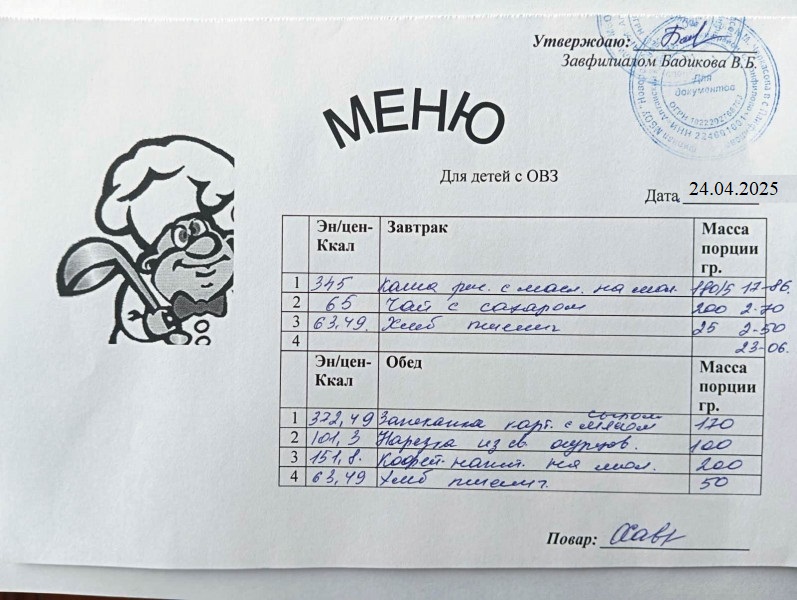 Утверждаю:
Завфилиалом Бадикова В.Б.
Для
документов
МЕНЮ
Для детей с ОВЗ
Дата 24.04.2025
Эн/цен-Ккал Завтрак Масса порции гр.
1 345 Каша рис. с масл. на мол. 190/5 17-86.
2 65 Чай с сахаром 200 2-70
3 63,49. Хлеб пшенич 25 2-50
4 23-06.
Эн/цен-Ккал Обед Масса порции гр.
1 372,49 Запеканка карт. с мясом сыром 170
2 101,3 Нарезка из св. огурцов. 100
3 151,8. Кофейн. напит. на мол. 200
4 63,49 Хлеб пшенич. 50
Повар: